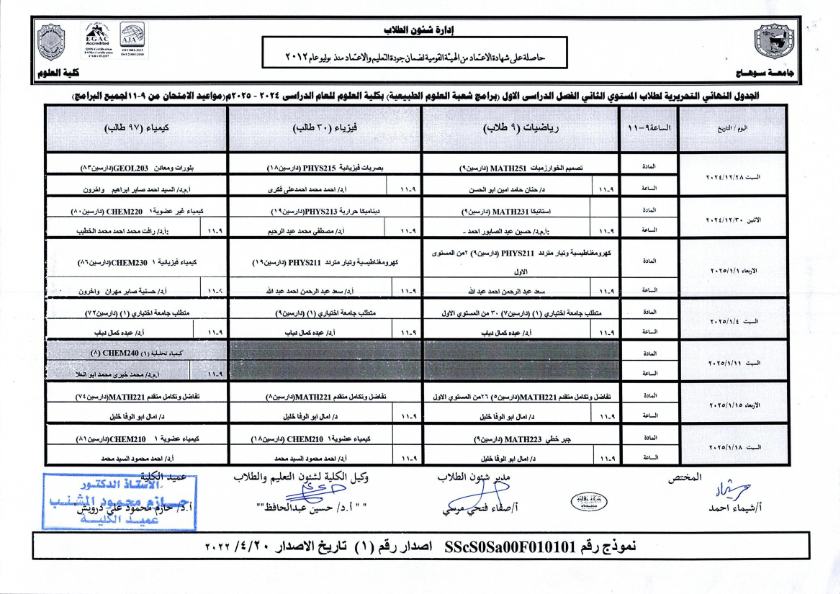 إدارة شئون الطلاب
حاصلة على شهادة الاعتماد من الهيئة القومية لضمان جودة التعليم والاعتماد منذ يوليو عام ٢٠١٢
EGAC
Accredited
AJA
جامعة سوهاج
كلية العلوم
الجدول النهائي التحريرية لطلاب المستوي الثاني الفصل الدراسى الاول (برامج شعبة العلوم الطبيعية) بكلية العلوم للعام الدراسى ٢٠٢٤ - ٢٠٢٥م(مواعيد الامتحان من ٩-١١ لجميع البرامج)
اليوم / التاريخ الساعة ٩-١١ رياضيات (٩ طلاب) فيزياء (٣٠ طالب) كيمياء (٩٧ طالب)
السبت ٢٠٢٤/١٢/٢٨
المادة تصميم الخوارزميات MATH251 (دارسين٩) بصريات فيزيائية PHYS215 (دارسين١٨) بلورات ومعادن GEOL203(دارسين٨٣)
الساعة ٩-١١ د/ حنان حامد امين ابو الحسن ٩-١١ أ.د/ احمد محمد احمدعلى فكرى ٩-١١ أ.م.د/ السيد احمد صابر ابراهيم واخرون
الاثنين ٢٠٢٤/١٢/٣٠
المادة استاتيكا MATH231 (دارسين٩) ديناميكا حرارية PHYS213 (دارسين١٩) كيمياء غير عضوية١ CHEM220 (دارسين٨٠)
الساعة ٩-١١ أ.م.د/ حسين عبد الصابور احمد - ٩-١١ أ.د/ مصطفي محمد عبد الرحيم ٩-١١ أ.د/ رافت محمد احمد محمد الخطيب
الاربعاء ٢٠٢٥/١/١
المادة كهرومغناطيسية وتيار متردد PHYS211 (دارسين٩) ٢من المستوى الاول كهرومغناطيسية وتيار متردد PHYS211 (دارسين١٩) كيمياء فيزيائية ١ CHEM230(دارسين٨٦)
الساعة ٩-١١ سعد عبد الرحمن احمد عبد الله ٩-١١ أ.د/ سعد عبد الرحمن احمد عبد الله ٩-١١ أ.د/ حسنية صابر مهران واخرون
السبت ٢٠٢٥/١/٤
المادة متطلب جامعة اختياري (١) (دارسين٧) ٣٠ من المستوي الاول متطلب جامعة اختياري (١) (دارسين٩) متطلب جامعة اختياري (١) (دارسين٧٢)
الساعة ٩-١١ أ.د/ عبده كمال دياب ٩-١١ أ.د/ عبده كمال دياب ٩-١١ أ.د/ عبده كمال دياب
السبت ٢٠٢٥/١/١١
المادة كيمياء تحليلية (١) CHEM240 (٨)
الساعة ٩-١١ أ.م.د/ محمد خيرى محمد ابو العلا
الاربعاء ٢٠٢٥/١/١٥
المادة تفاضل وتكامل متقدم MATH221(دارسين٥) ٢٦من المستوي الاول تفاضل وتكامل متقدم MATH221(دارسين٨) تفاضل وتكامل متقدم MATH221(دارسين٧٤)
الساعة ٩-١١ د/ امال ابو الوفا خليل ٩-١١ د/ امال ابو الوفا خليل د/ امال ابو الوفا خليل
السبت ٢٠٢٥/١/١٨
المادة جبر خطي MATH223 (دارسين٩) كيمياء عضوية١ CHEM210 (دارسين١٨) كيمياء عضوية ١ CHEM210(دارسين٨١)
الساعة ٩-١١ د/ امال ابو الوفا خليل ٩-١١ أ.د/ احمد محمود السيد محمد أ.د/ احمد محمود السيد محمد
المختص مدير شئون الطلاب وكيل الكلية لشئون التعليم والطلاب عميد الكلية
أ/شيماء احمد أ/صفاء فتحي مرسي " " أ.د/ حسين عبدالحافظ"" أ.د/ حازم محمود علي درويش
الأستاذ الدكتور
حازم محمود المشنب
عميد الكلية
نموذج رقم SScS0Sa00F010101 اصدار رقم (١) تاريخ الاصدار ٢٠/ ٤/ ٢٠٢٢